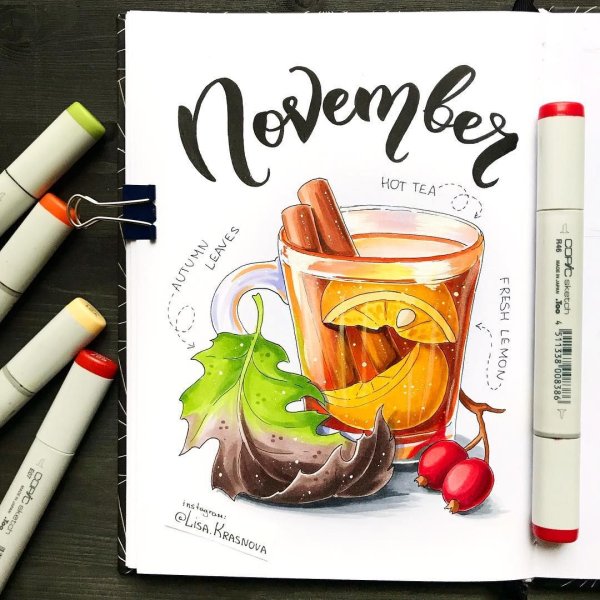 November
HOT TEA
AUTUMN
LEAVES
FRESH LEMON
instagram:
@LISA.KRASNOVA
R46
COPIC sketch
MADE IN JAPAN
.Too
4 511338 008386
COPIC sketch
MADE IN JAPAN
.Too